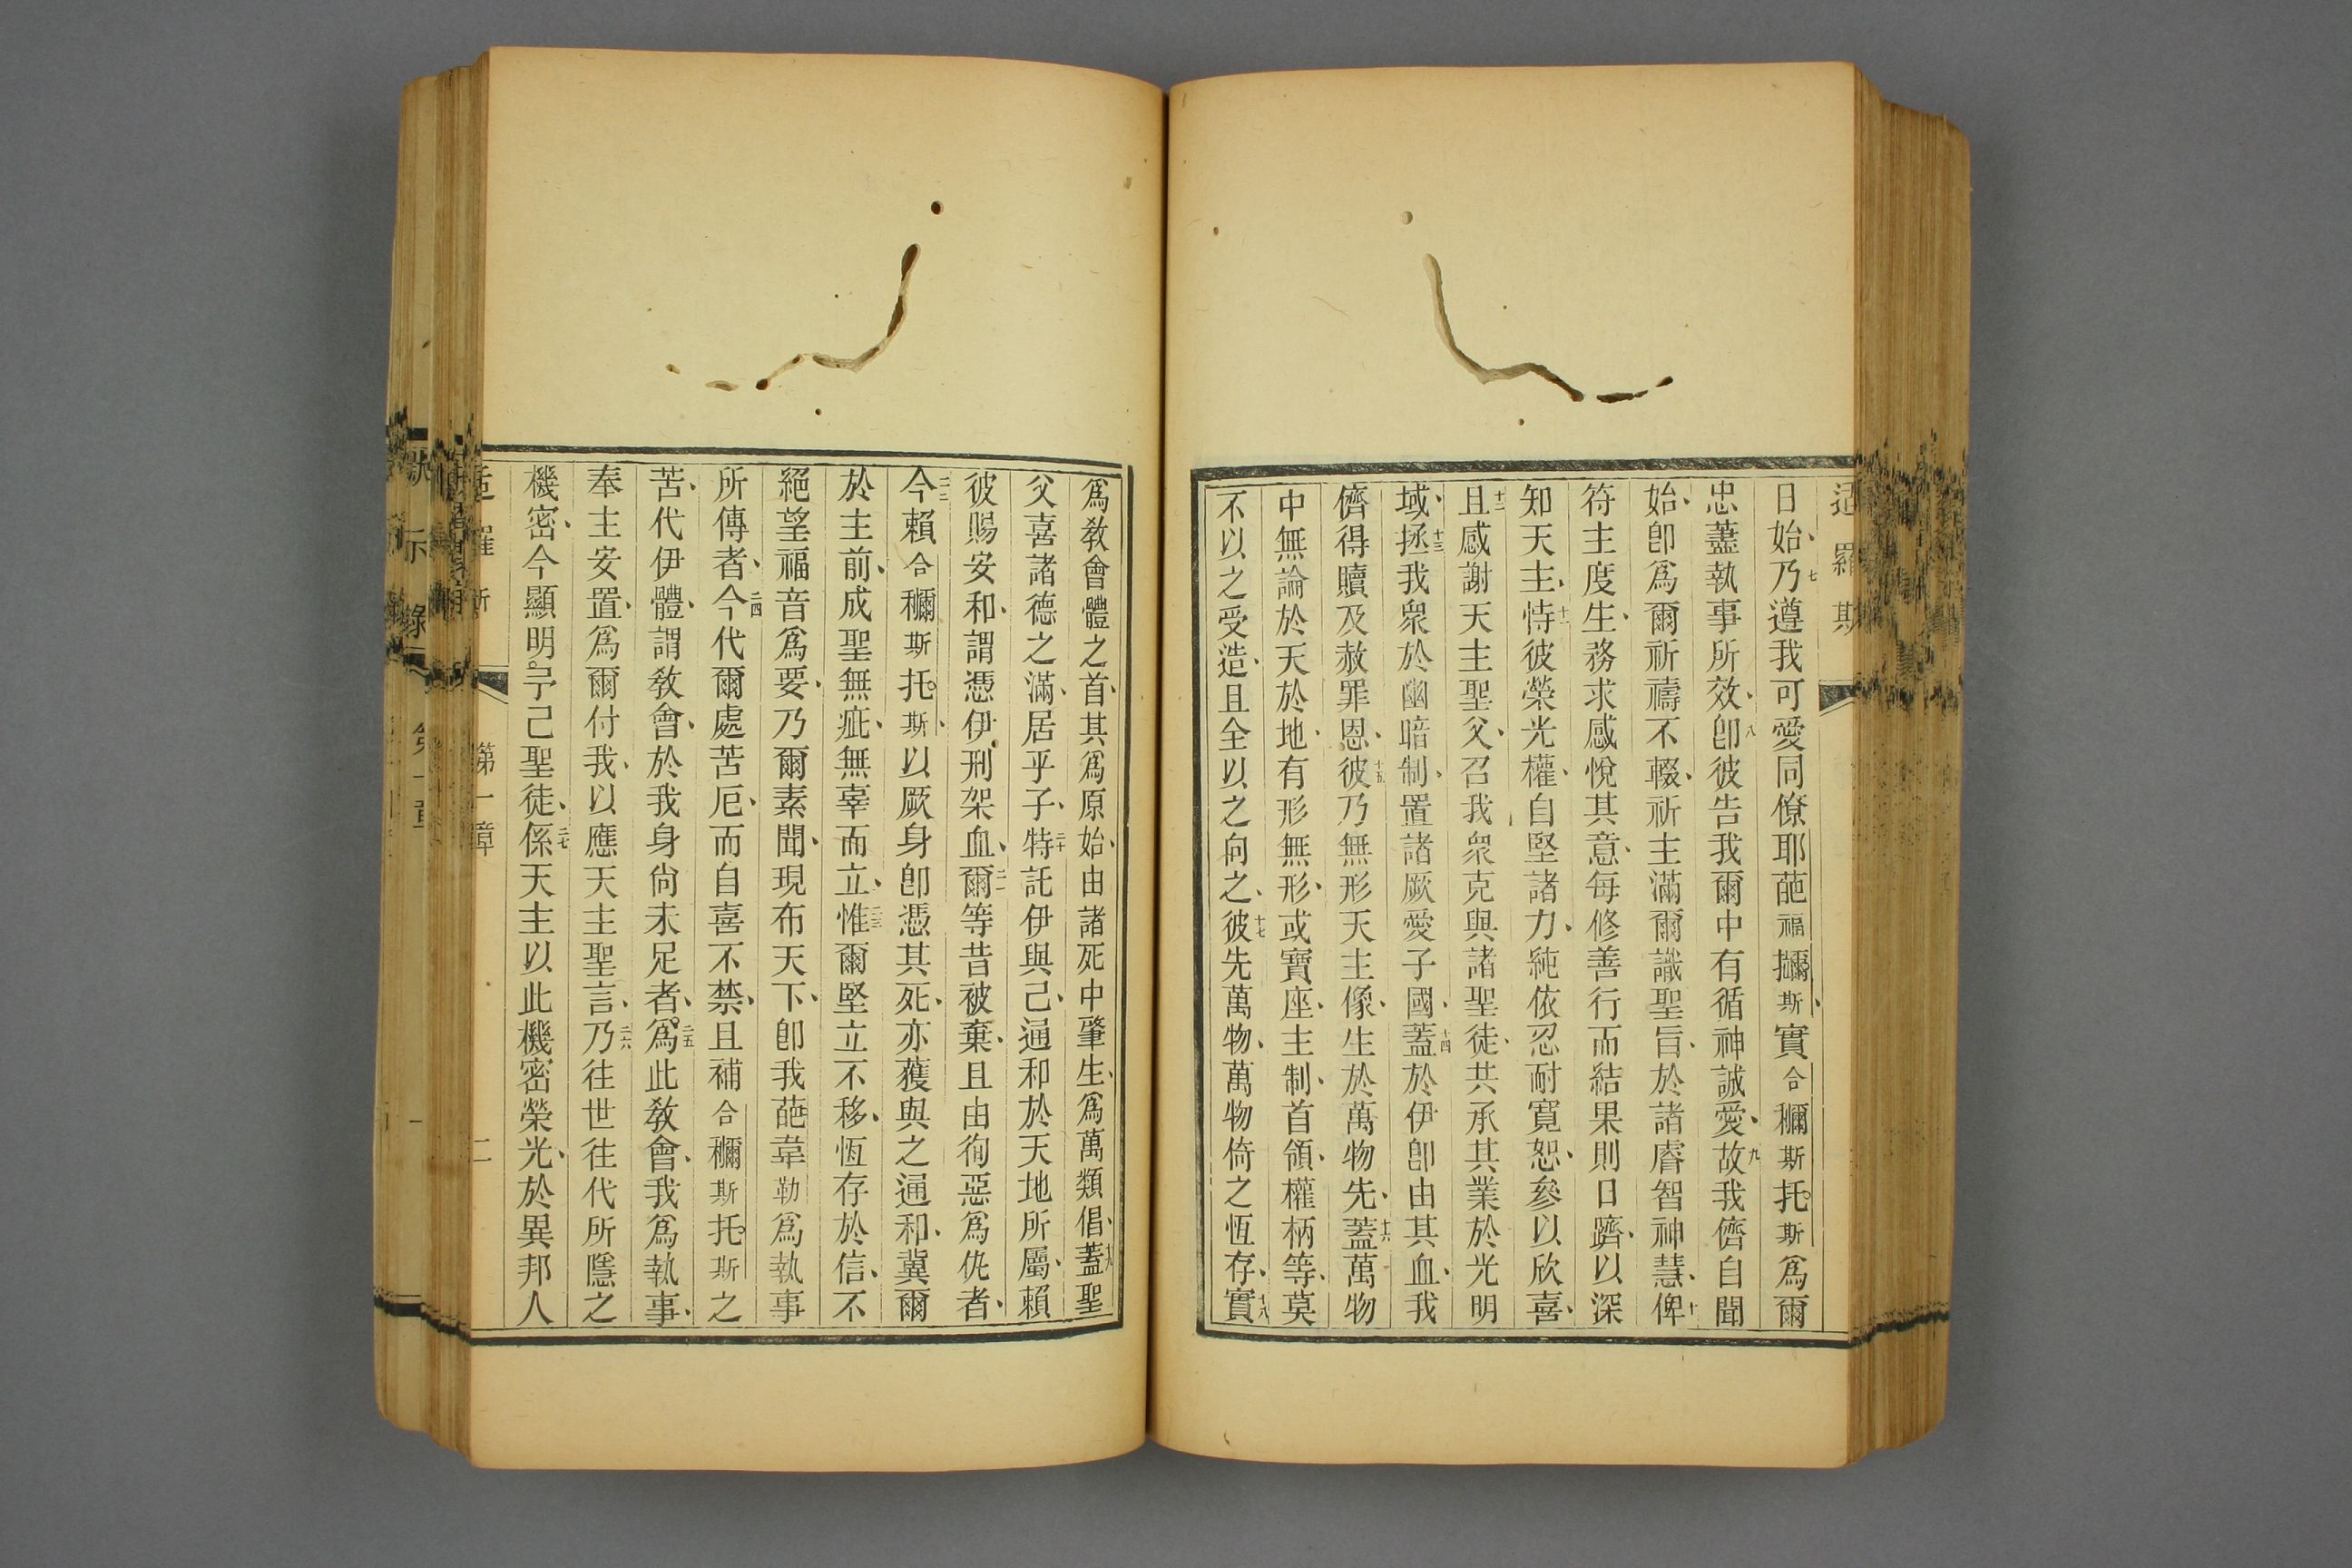 羅斯
日始、乃七遵我可愛同僚耶葩福㺃斯、實合穪斯托。斯爲爾
忠蓋執事所效、卽八彼告我爾中有循神誠愛、故九我儕自聞
始、卽爲爾祈禱不輟、祈主滿爾識聖旨、於諸睿智神慧、俾十
符主度生、務求感悅其意、每修善行而結果則日躋、以深
知天主、恃十一彼榮光權、自堅諸力、純依忍耐寬恕、參以欣喜、
且十二感謝天主聖父、召我衆克與諸聖徒、共承其業於光明
域、拯十三我衆於幽暗制、置諸厥愛子國、蓋十四於伊卽由其血、我
儕得贖及赦罪恩、彼十五乃無形天主像、生於萬物先、蓋十六萬物
中無論於天於地、有形無形、或寶座、主制、首領、權柄等、莫
不以之受造、且全以之向之、彼十七先萬物、萬物倚之恆存、實十八
爲敎會體之首、其爲原始、由諸死中肇生、爲萬類倡、蓋十九聖
父喜諸德之滿、居乎子、特二十託伊與己、通和於天地所屬、賴
彼賜安和、謂憑伊刑架血、爾二一等昔被棄、且由徇惡爲仇者、
今二二賴合穪斯托。斯、以厥身卽憑其死、亦獲與之通和、冀爾
於主前、成聖無疵、無辜而立、惟二三爾堅立不移、恆存於信、不
絕望福音爲要、乃爾素聞、現布天下、卽我葩韋勒爲執事
所傳者、今二四代爾處苦厄、而自喜不禁、且補合穪斯托。斯之
苦、代伊體、謂敎會、於我身尙未足者。爲二五此敎會、我爲執事、
奉主安置、爲爾付我、以應天主聖言、乃二六往世往代所隱之
機密、今顯明。予己聖徒、係二七天主以此機密榮光、於異邦人
第一章
二